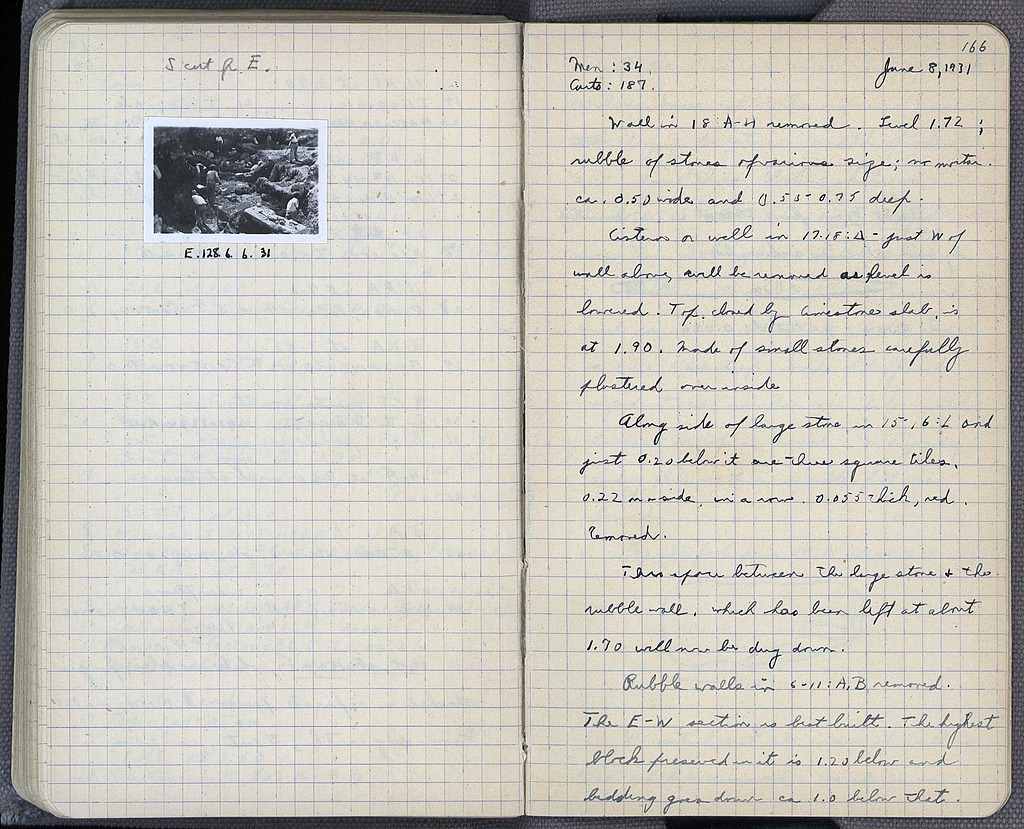 S cut fr. E.
E.128. 6. 6. 31
166
Men : 34 June 8, 1931
Carts : 187.
Wall in 18 : A-H removed. Level 1.72 ;
rubble of stones of various size; no mortar.
ca. 0.50 wide and 0.55-0.75 deep.
Cistern or well in 17.18 : Δ - just W of
wall above, will be removed as level is
lowered. Top, closed by limestone slab, is
at 1.90. Made of small stones carefully
plastered over inside
Along side of large stone in 15-16 : L and
just 0.20 below it are three square tiles,
0.22 on a side, in a row. 0.055 thick, red.
Removed.
The space between the large stone & the
rubble wall, which has been left at about
1.70 will now be dug down.
Rubble walls in 6-11 : A, B removed.
The E-W section is best built. The highest
block preserved in it is 1.20 below and
bedding goes down ca 1.0 below that.